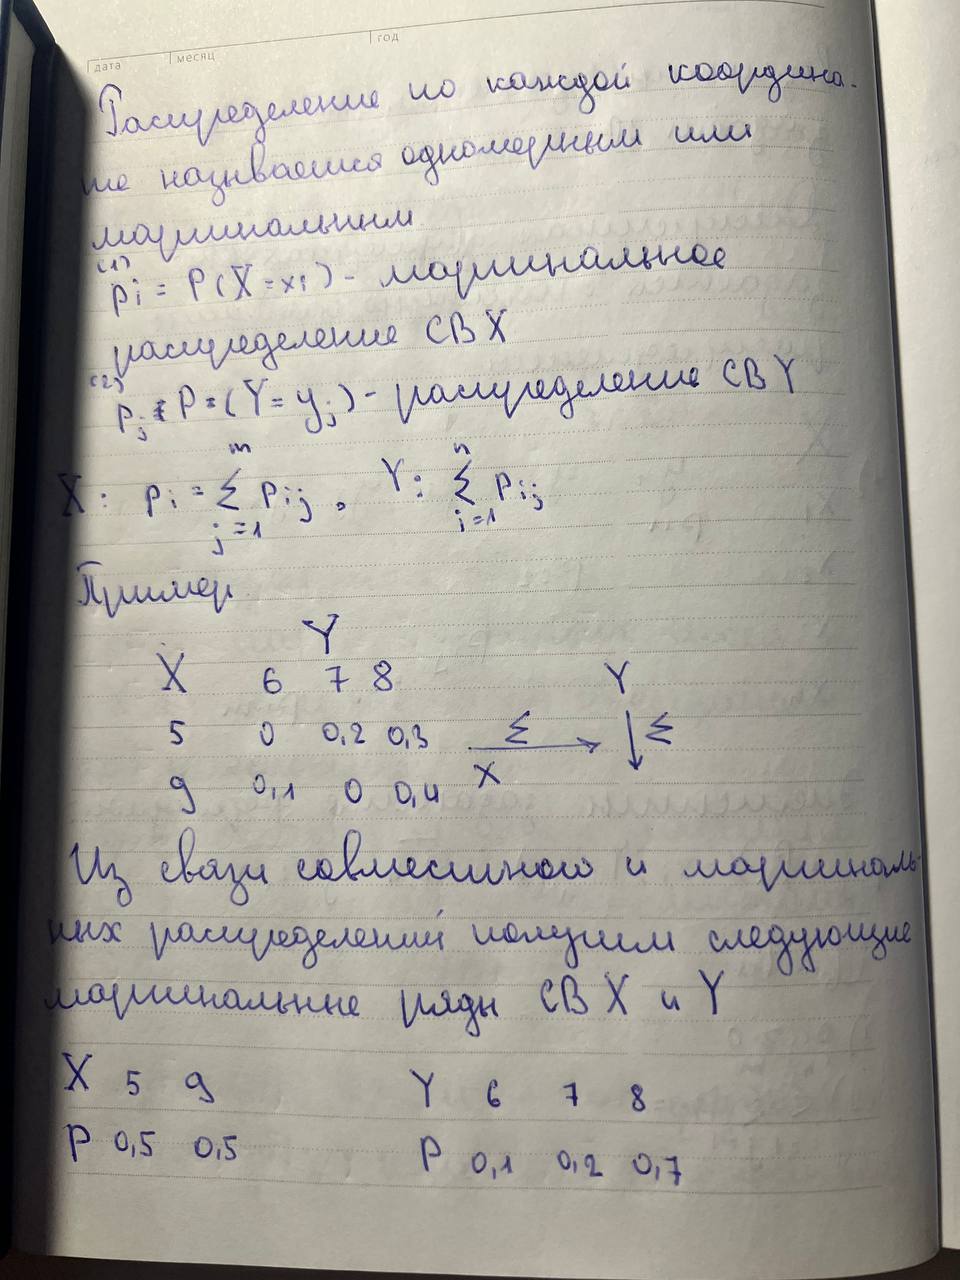 дата месяц год
Распределение по каждой координа-
те называется одномерным или
маргинальным.
p_i^(1) = P(X=x_i) - маргинальное
распределение СВ X
p_j^(2) = P=(Y=y_j) - распределение СВ Y
X: p_i = Σ_{j=1}^{m} p_ij, Y: Σ_{i=1}^{n} p_ij
Пример
Y
X 6 7 8 Y
5 0 0,2 0,3 Σ → ↓ Σ
9 0,1 0 0,4 X
Из связи совместного и маргиналь-
ных распределений получим следующие
маргинальные ряды СВ X и Y
X 5 9 Y 6 7 8
P 0,5 0,5 P 0,1 0,2 0,7